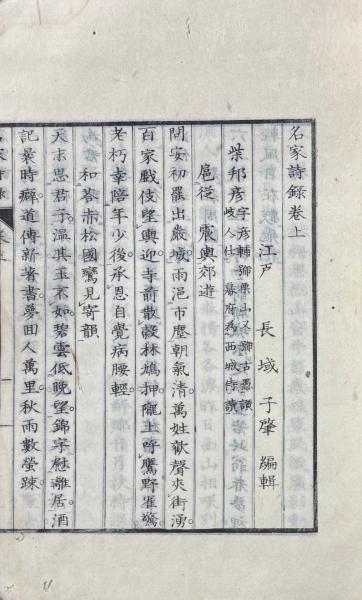 名家詩錄卷上
江戶 長域子肇 編輯
柴邦彥 字彥輔號栗山又號古愚讚
岐人仕 幕府為西城侍讀
扈從 震輿郊遊
問安初罷出嚴城雨浥市塵朝氣清萬姓歡聲夾街湧
百家戲伎望輿迎寺前散穀林鳩押隴上呼鷹野雀驚
老朽幸陪年少後承恩自覺病腰輕
和荅赤松國鸞見寄韻
天末思君子溫其玉不如碧雲低晚望錦字慰離居酒
記棊時癖道傳新著書夢田人萬里秋雨數螢疎